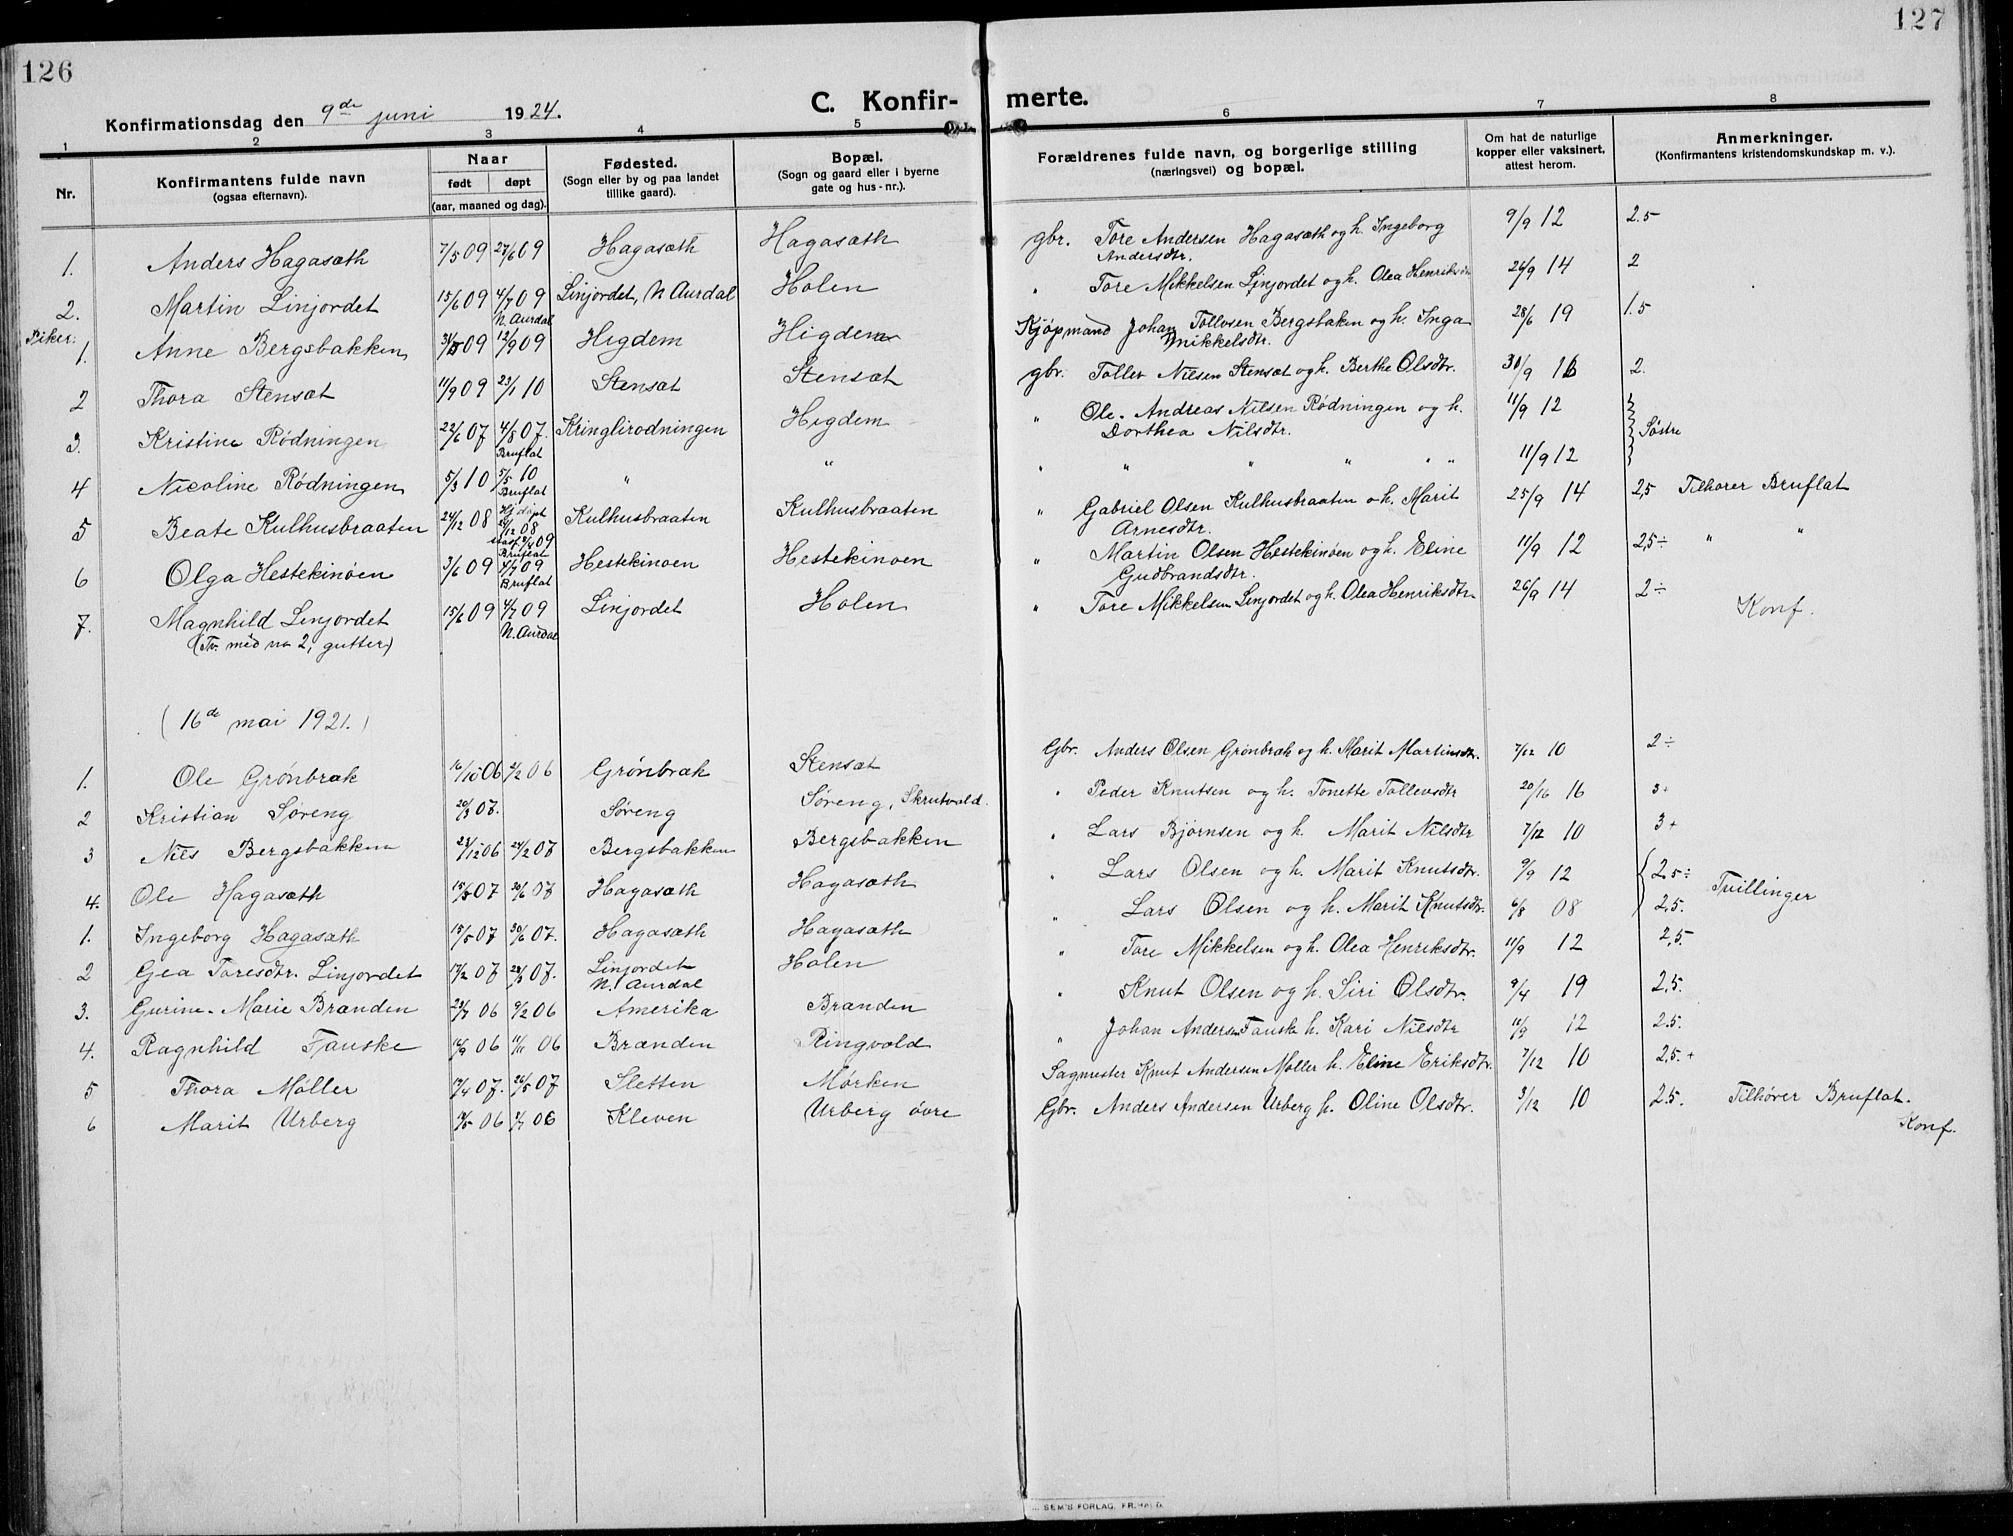 126
127
Konfirmationsdag den 9de juni 1924.
C. Konfir- merte.
1 2 3 4 5 6 7 8
Nr.
Konfirmantens fulde navn
(ogsaa efternavn).
Naar
født døpt
(aar, maaned og dag).
Fødested.
(Sogn eller by og paa landet
tillike gaard).
Bopæl.
(Sogn og gaard eller i byerne
gate og hus-nr.).
Forældrenes fulde navn, og borgerlige stilling
(næringsvei) og bopæl.
Om hat de naturlige
kopper eller vaksinert,
attest herom.
Anmerkninger.
(Konfirmantens kristendomskundskap m. v.).
1. Anders Hagasæth 7/5 09 27/6 09 Hagasæth Hagasæth gbr. Tore Andersen Hagasæth og h. Ingeborg 9/9 12 2.5
Andersdtr.
2. Martin Linjordet 15/6 09 4/7 09 Linjordet, N. Aurdal Holen " Tore Mikkelsen Linjordet og h. Olea Henriksdtr 26/9 14 2
N. Aurdal
Piker:
1. Anne Bergsbakken 09 12/9 09 Higdem Higdem Kjøpmand Johan Tollevsen Bergsbaken og h. Inga 28/6 19 1.5
Mikkelsdtr.
2 Thora Stensæt 11/9 09 23/1 10 Stensæt Stensæt gbr. Tollev Nilsen Stensæt og h. Berthe Olsdtr. 30/9 16 2.
3. Kristine Rødningen 22/6 07 4/8 07. Kringlirødningen Higdem " Ole Andreas Nilsen Rødningen og h. 11/9 12 Søstre
Bruflat Dorthea Nilsdtr.
4 Nicoline Rødningen 5/3 10 5/5 10 " " " " " " " " 11/9 12
Bruflat
5 Beate Kulhusbraaten 24/12 08 Hj. døpt Kulhusbraaten Kulhusbraaten " Gabriel Olsen Kulhusbraaten o h. Marit 25/9 14 2,5 Tilhører Bruflat
Arnesdtr.
Bruflat
6 Olga Hestekinøen 3/6 09 4/7 09 Hestekinøen Hestekinøen " Martin Olsen Hestekinøen og h. Eline 11/9 12 2,5÷ " "
Bruflat Gudbrandsdtr.
7. Magnhild Linjordet 15/6 09 4/7 09 Linjordet Holen " Tore Mikkelsen Linjordet og h. Olea Henriksdtr 26/9 14 2÷ Konf.
(Tv. med nr 2, gutter) N. Aurdal
(16de mai 1921.)
1. Ole Grønbræk 16/10 06 2/2 06 Grønbræk Stensæt Gbr. Anders Olsen Grønbræk og h. Marit Martinsdtr. 7/12 10 2÷
2 Kristian Søreng 20/3 07. Søreng Søreng, Skrutvold. " Peder Knutsen og h. Tonette Tollevsdtr 20/16 16 3+
3 Nils Bergsbakken 22/12 06 24/2 07 Bergsbakken Bergsbakken " Lars Bjørnsen og h. Marit Nilsdtr 7/12 10 3+
4. Ole Hagasæth 15/5 07 30/6 07 Hagasæth Hagasæth " Lars Olsen og h. Marit Knutsdtr. 9/9 12 2.5÷ Tvillinger
1. Ingeborg Hagasæth 15/5 07 30/6 07. Hagasæth Hagasæth " Lars Olsen og h. Marit Knutsdtr. 6/8 08 2,5.
2 Gea Toresdtr. Linjordet 17/2 07 07. Linjordet Holen " Tore Mikkelsen og h. Olea Henriksdtr. 11/9 12 2,5.
N. Aurdal
3. Gurine Marie Branden 06 9/2 06 Amerika Branden " Knut Olsen og h. Siri Olsdtr. 9/4 19 2,5.
4. Ragnhild Fauske 16/9 06 11/11 06 Branden Ringvold " Johan Andersen Fauske h. Kari Nilsdtr 11/9 12 2.5.
5 Thora Møller 17/4 07. 26/5 07 Sletten Mørken Sagmester Knut Andersen Møller h. Eline Eriksdtr. 7/12 10 2,5.+
6 Marit Urberg 06 06 Kleven Urberg øvre Gbr. Anders Andersen Urberg h. Oline Olsdtr. 3/12 10 2.5. Tilhører Bruflat.
Konf.
SEM'S FORLAG, FR.HALD.